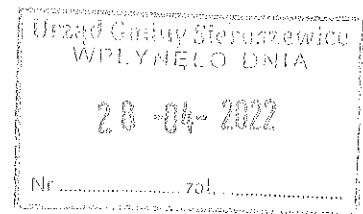 Urząd Gminy Sieroszewice
WPŁYNĘŁO DNIA
28 -04- 2022
Nr ........................ zał. ..............................